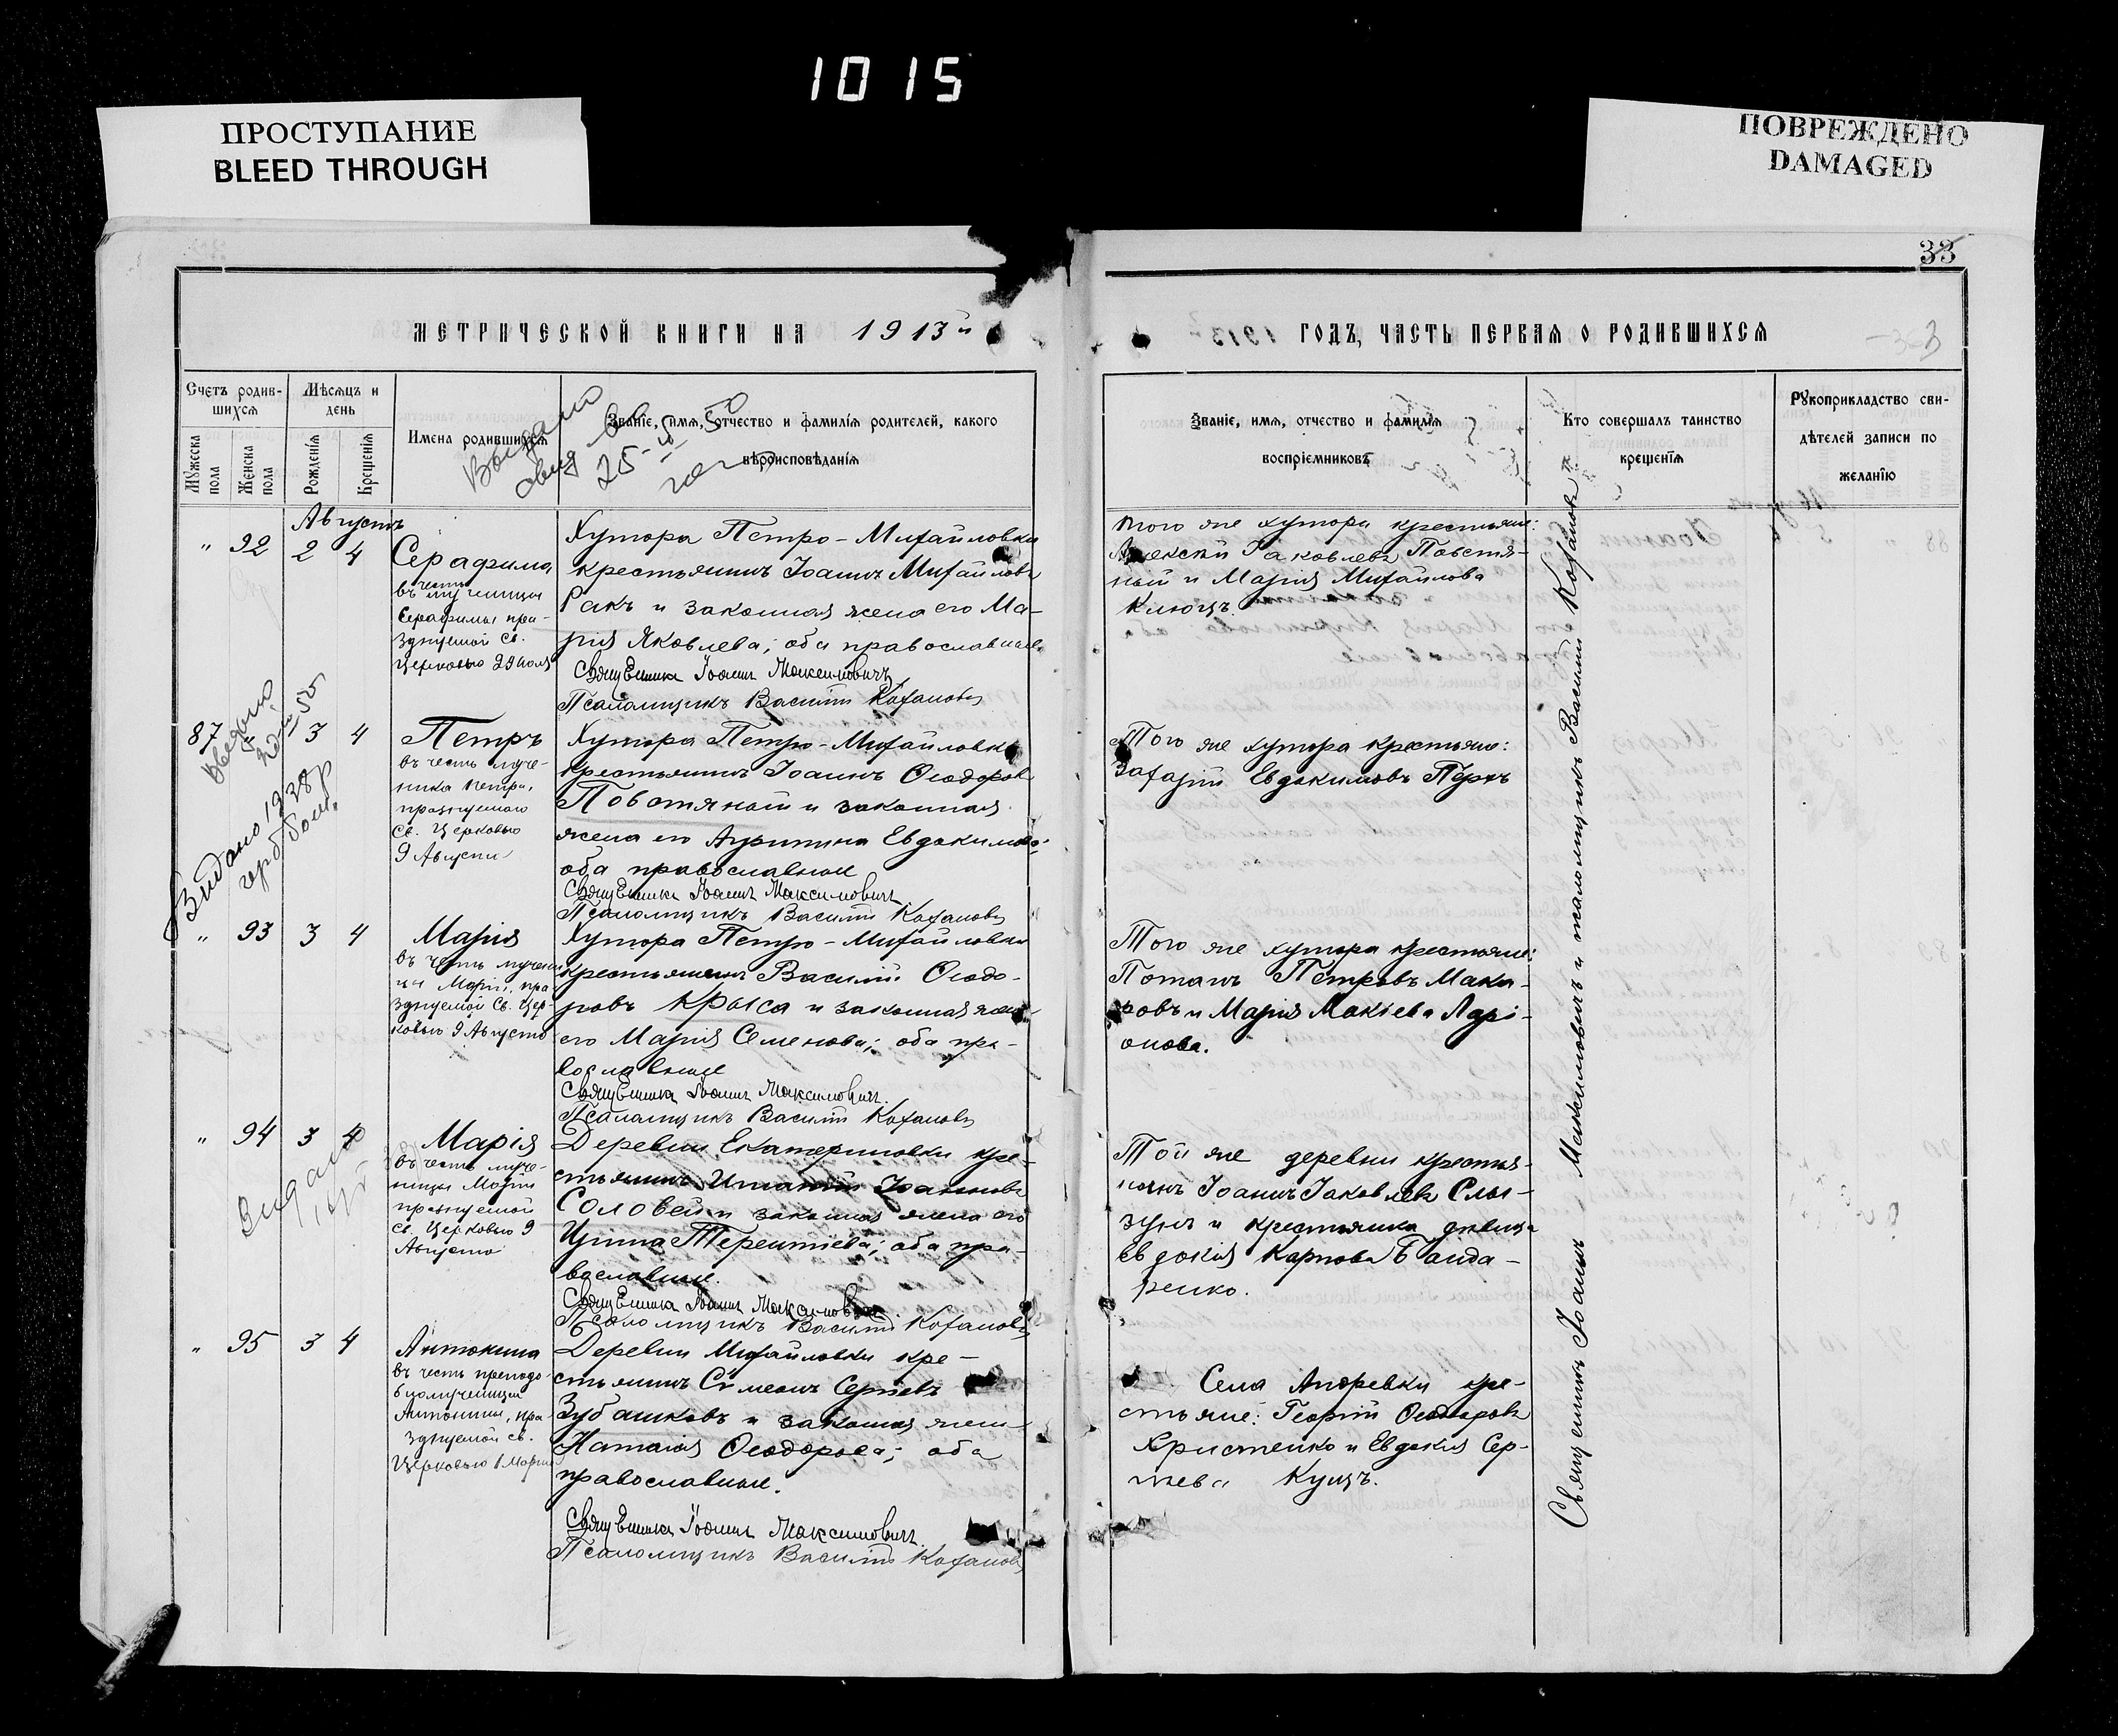 1015
ПРОСТУПАНИЕ
BLEED THROUGH
ПОВРЕЖДЕНО
DAMAGED
33
МЕТРИЧЕСКОЙ КНИГИ НА 1913й
ГОДЪ, ЧАСТЬ ПЕРВАЯ О РОДИВШИХСЯ
Счетъ родив-
шихся
Мужеска
пола
Женска
пола
Мѣсяцъ и
день
Рожденія
Крещенія
Имена родившихся
Званіе, имя, отчество и фамилія родителей, какого
вѣроисповѣданія
Званіе, имя, отчество и фамилія
воспріемниковъ
Кто совершалъ таинство
крещенія
Рукоприкладство сви-
дѣтелей записи по
желанію
Августъ
" 92 2 4
Серафима
въ честь
мученицы
Серафимы пра-
зднуемой Св.
Церковью 29 Іюля
Хутора Петро-Михайловки
крестьянинъ Іоаннъ Михайловъ
Ракъ и законная жена его Ма-
рія Яковлева; оба православные
Священникъ Іоаннъ Максимовичъ
Псаломщикъ Василій Кохановъ
того же хутора крестьяне:
Алексій Іаковлевъ Повстя-
ный и Марія Михайлова
Клюцъ.
87 " 3 4
Петръ
въ честь муче-
ника Петра,
празднуемаго
Св. Церковью
9 Августа
Хутора Петро-Михайловки
крестьянинъ Іоаннъ Ѳеодоровъ
Повстяной и законная
жена его Агрипина Евдокимова;
оба православные
Священникъ Іоаннъ Максимовичъ
Псаломщикъ Василій Кохановъ
Того же хутора крестьяне:
Захарій Евдокимовъ Перкъ
Видано 1938 р
" 93 3 4
Марія
въ честь мучени-
цы Маріи, пра-
зднуемой Св. Цер-
ковью 9 Августа
Хутора Петро-Михайловки
крестьянинъ Василій Ѳеодо-
ровъ Крыса и законная жена
его Марія Семенова; оба пра-
вославные
Священникъ Іоаннъ Максимовичъ.
Псаломщикъ Василій Кохановъ
Того же хутора крестьяне:
Потапъ Петровъ Мака-
ровъ и Марія Макіева Ларі-
онова.
" 94 3 4
Марія
въ честь муче-
ницы Маріи
празднуемой
Св. Церковью 9
Августа
Деревни Екатериновки кре-
стьянинъ Игнатій Іоанновъ
Соловей и законная жена его
Ирина Терентіева; оба пра-
вославные.
Священникъ Іоаннъ Максимовичъ.
Псаломщикъ Василій Кохановъ
Той же деревни крестья-
нинъ Іоаннъ Іаковлевъ Слы-
зунъ и крестьянка дѣвица
Евдокія Карпова Банда-
ренко.
" 95 3 4
Антонина
въ честь преподо-
бномученицы
Антонины, пра-
зднуемой Св.
Церковью 1 Марта
Деревни Михайловки кре-
стьянинъ Сѵмеонъ Сергіевъ
Зубашковъ и законная жена
Наталія Ѳеодорова; оба
православные.
Священникъ Іоаннъ Максимовичъ.
Псаломщикъ Василій Кохановъ
Села Андревки кре-
стьяне: Георгій Ѳеодоровъ
Христенко и Евдокія Сер-
гіева Куцъ.
Священникъ Іоаннъ Максимовичъ и псаломщикъ Василій Кохановъ